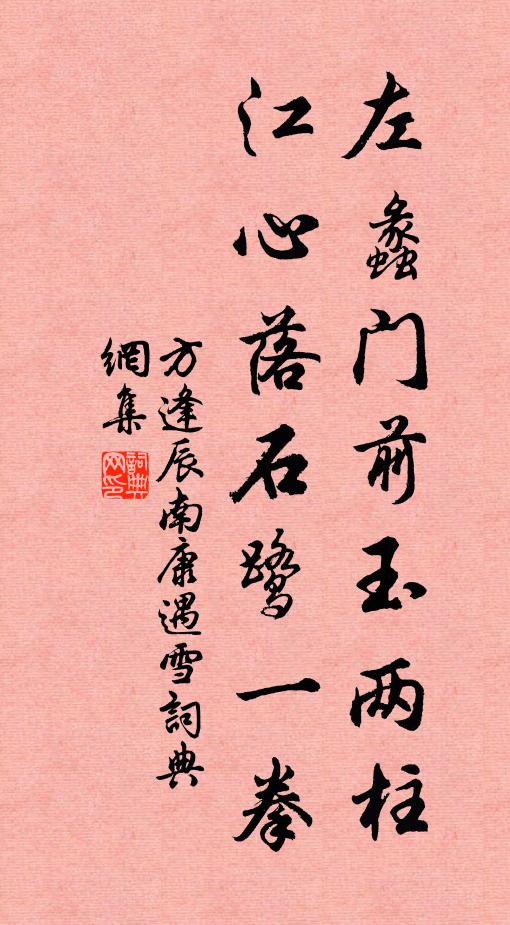 左蠡门前玉两柱
江心落石鹭一拳
方逢辰南康遇雪詞典
網集
詞典网印